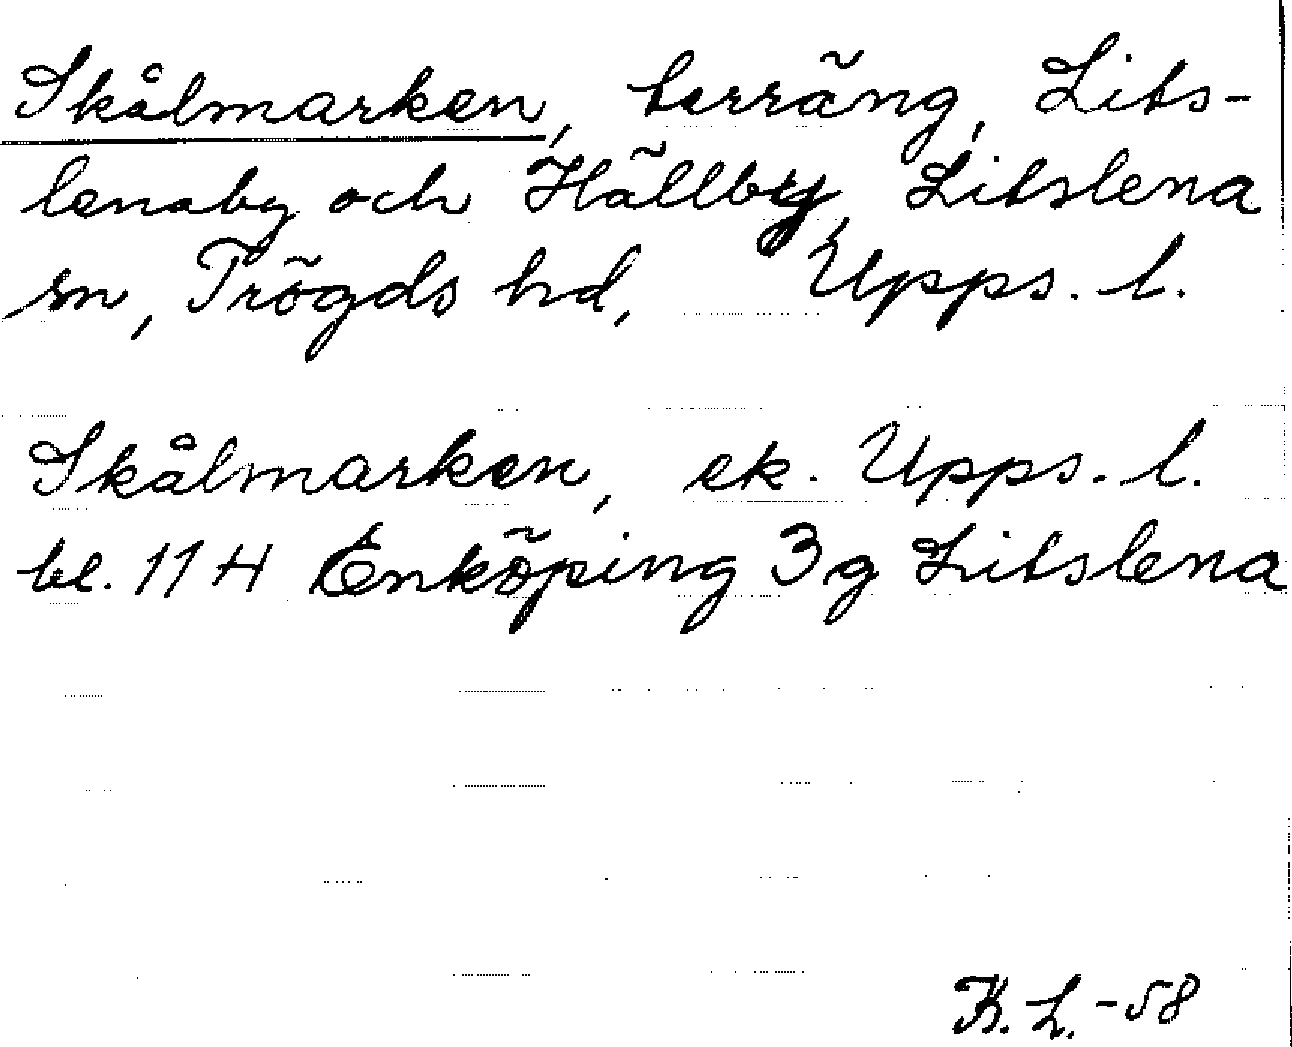 Skålmarken, terräng, Lits-
lenaby och Hällby, Litslena
sn, Trögds hd, Upps. l.
Skålmarken, ek. Upps. l.
bl. 11 H Enköping 3 g Litslena
K. L. -58